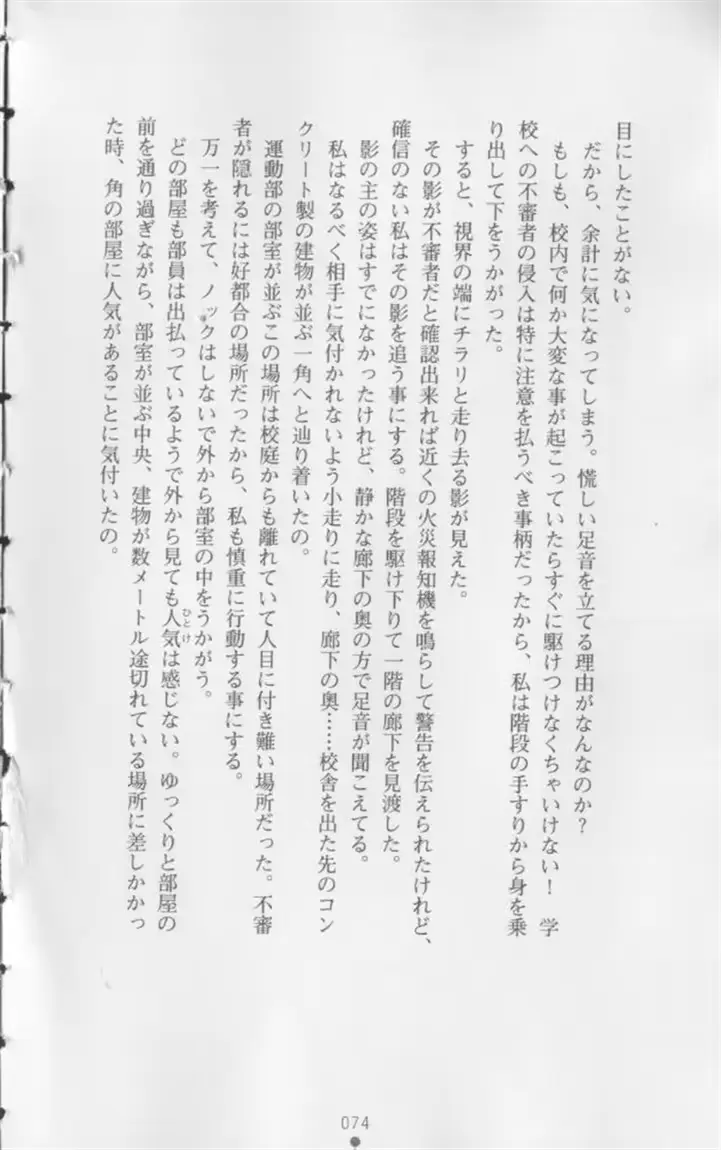 目にしたことがない。
だから、余計に気になってしまう。慌しい足音を立てる理由がなんなのか？
もしも、校内で何か大変な事が起こっていたらすぐに駆けつけなくちゃいけない！　学
校への不審者の侵入は特に注意を払うべき事柄だったから、私は階段の手すりから身を乗
り出して下をうかがった。
すると、視界の端にチラリと走り去る影が見えた。
その影が不審者だと確認出来れば近くの火災報知機を鳴らして警告を伝えられたけれど、
確信のない私はその影を追う事にする。階段を駆け下りて一階の廊下を見渡した。
影の主の姿はすでになかったけれど、静かな廊下の奥の方で足音が聞こえてる。
私はなるべく相手に気付かれないよう小走りに走り、廊下の奥……校舎を出た先のコン
クリート製の建物が並ぶ一角へと辿り着いたの。
運動部の部室が並ぶこの場所は校庭からも離れていて人目に付き難い場所だった。不審
者が隠れるには好都合の場所だったから、私も慎重に行動する事にする。
万一を考えて、ノックはしないで外から部室の中をうかがう。
どの部屋も部員は出払っているようで外から見ても人気は感じない。ゆっくりと部屋の
ひとけ
前を通り過ぎながら、部室が並ぶ中央、建物が数メートル途切れている場所に差しかかっ
た時、角の部屋に人気があることに気付いたの。
074